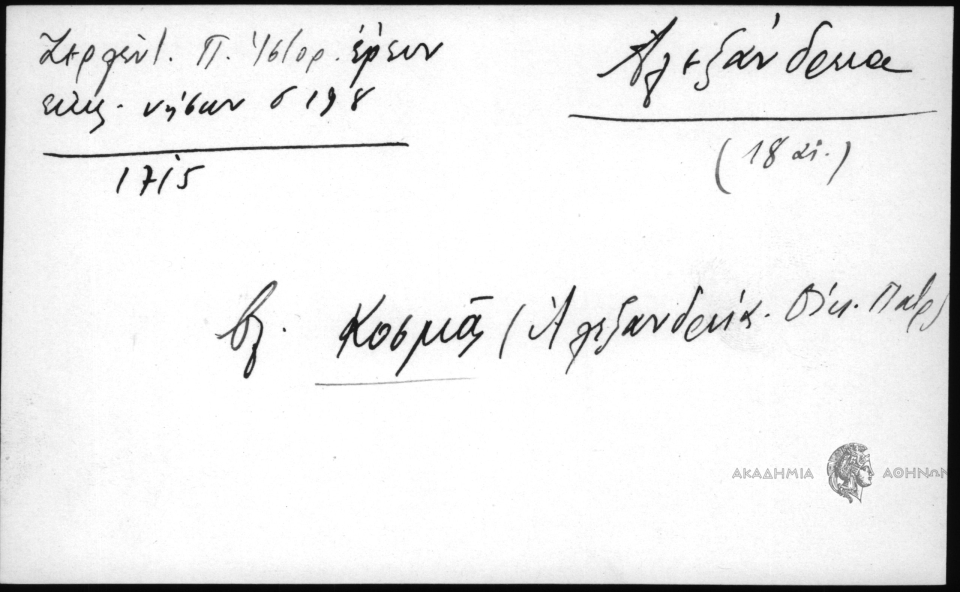 Ζερλέντ. Π. Ἱστορ. ἔρευν
εκκ. νήσων σ 198
1715
Ἀλεξάνδρεια
(18 αἰ.)
βλ. Κοσμᾶς (Ἀλεξανδρείας. Οἰκ. Πατρ)
ΑΚΑΔΗΜΙΑ ΑΘΗΝΩΝ